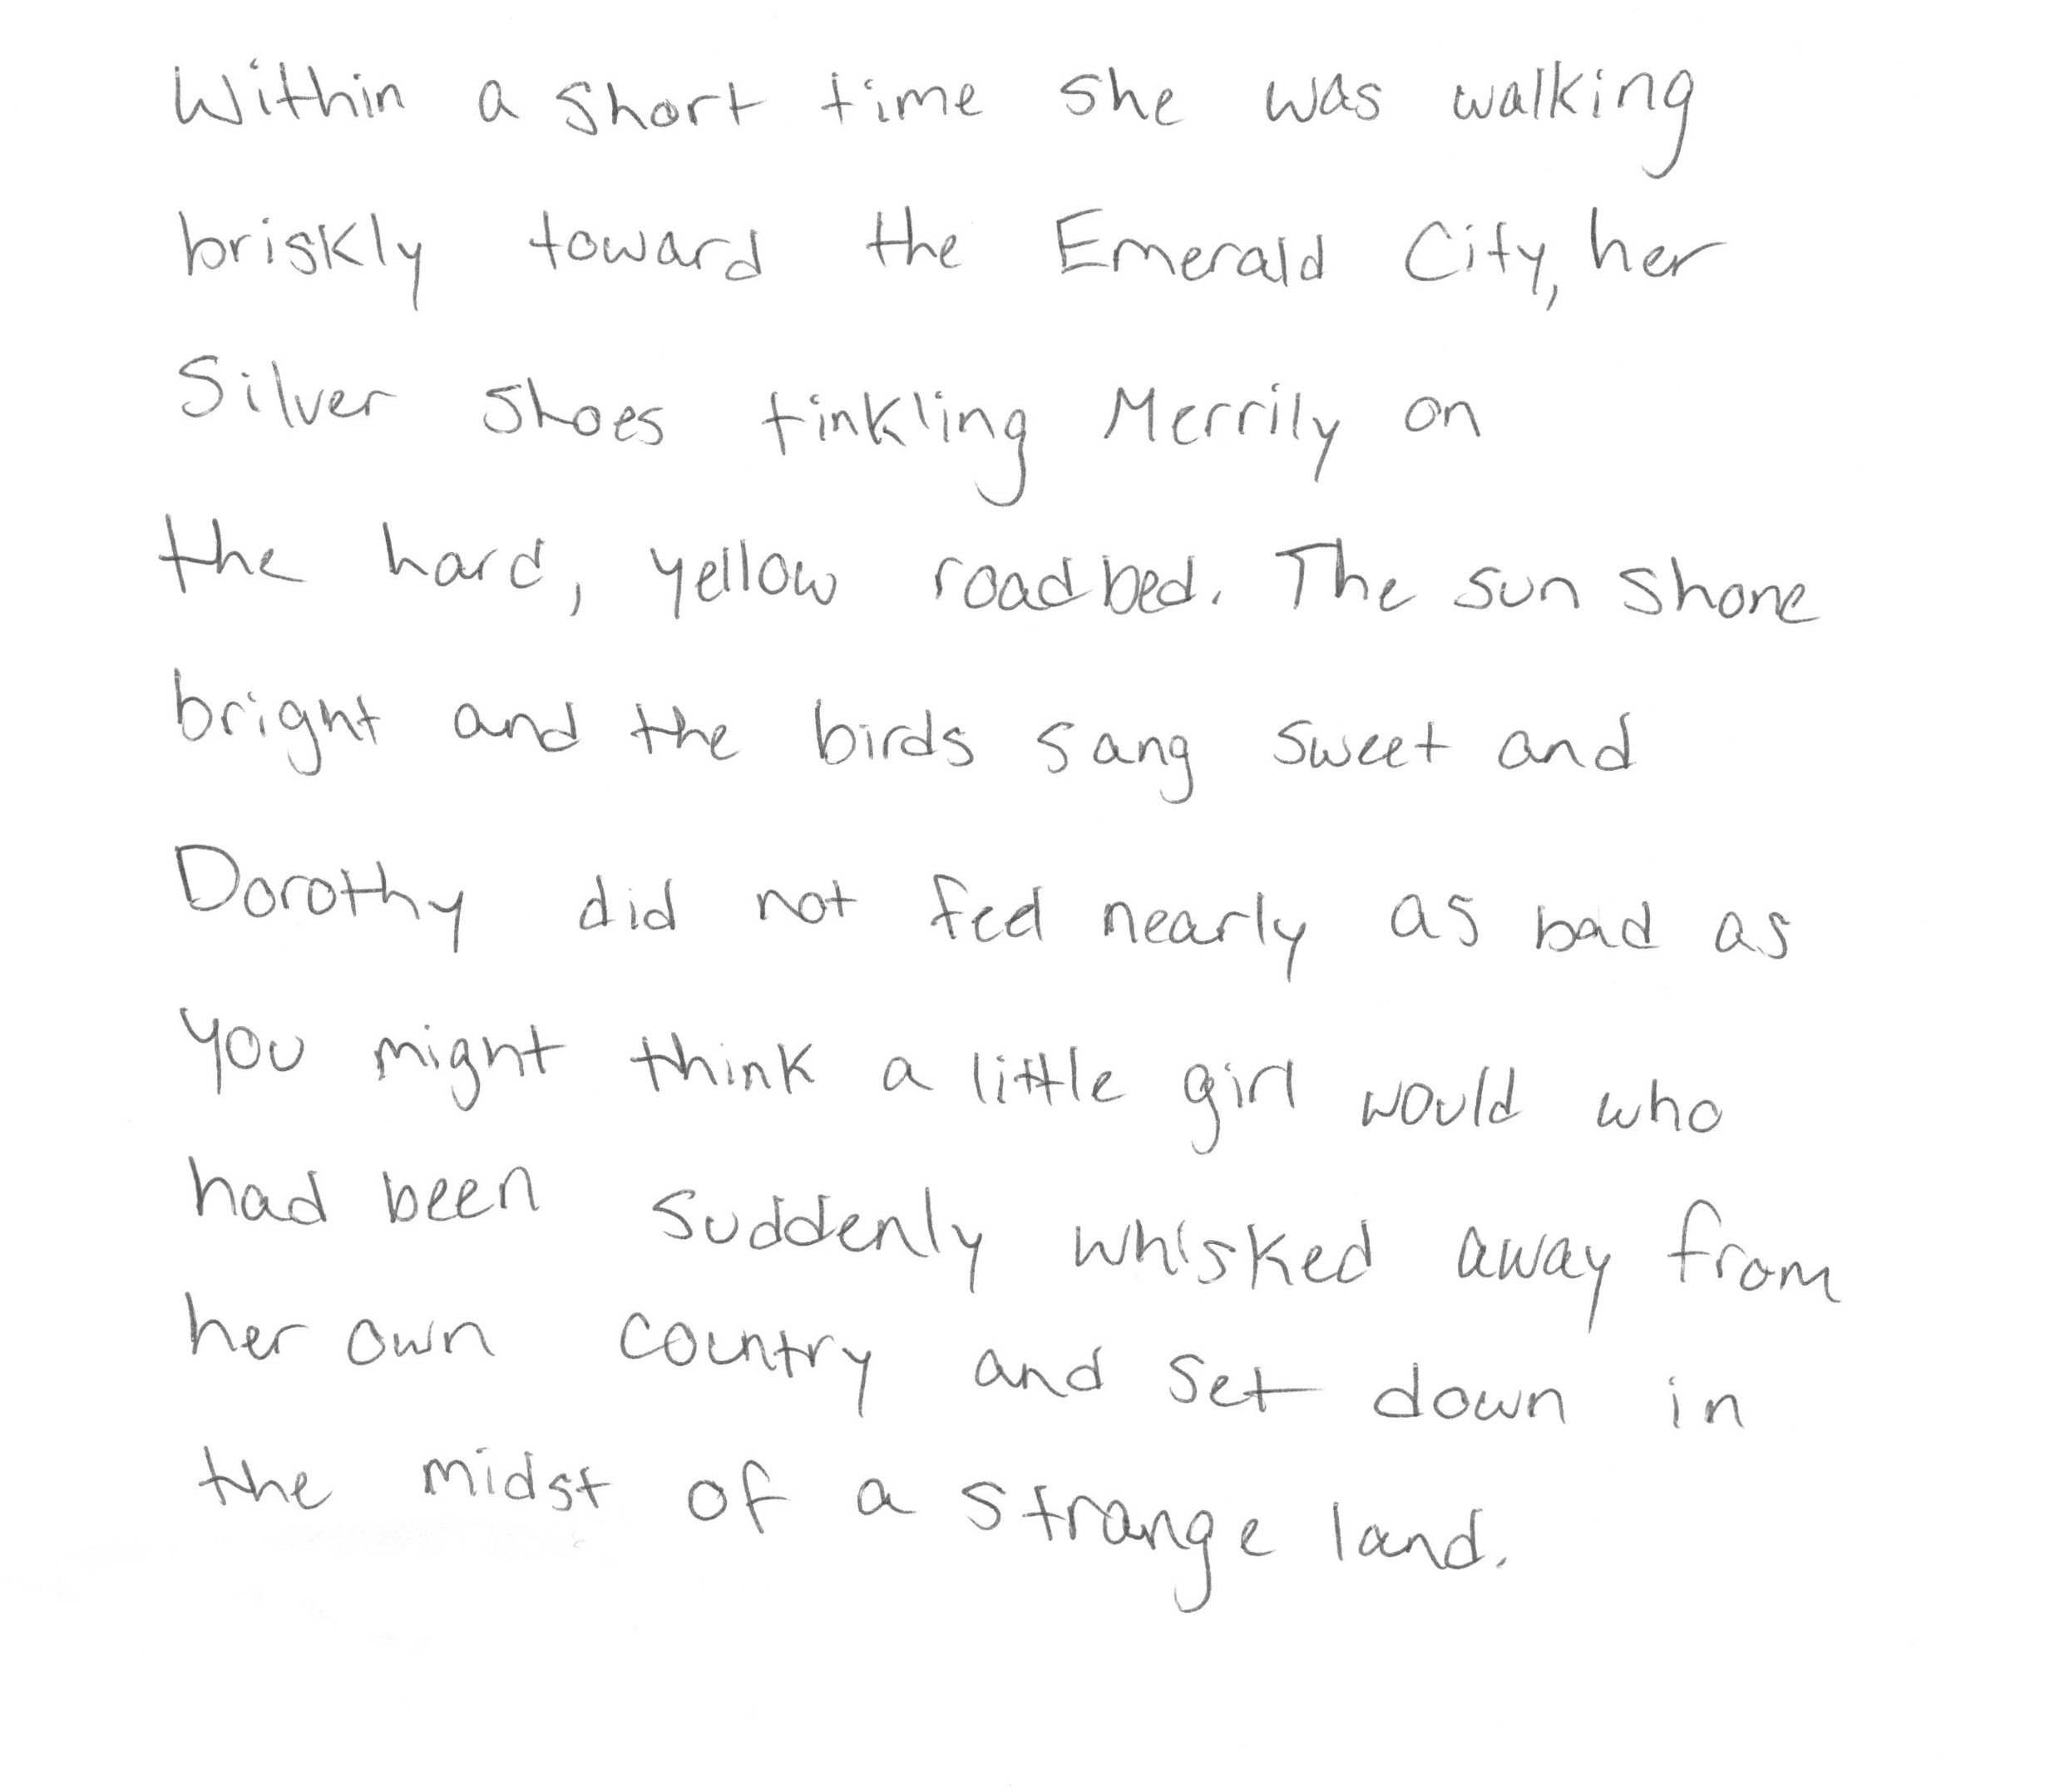 Within a short time she was walking
briskly toward the Emerald City, her
Silver shoes tinkling Merrily on
the hard, yellow roadbed. The sun shone
bright and the birds sang sweet and
Dorothy did not feel nearly as bad as
you might think a little girl would who
had been suddenly whisked away from
her own country and set down in
the midst of a strange land.